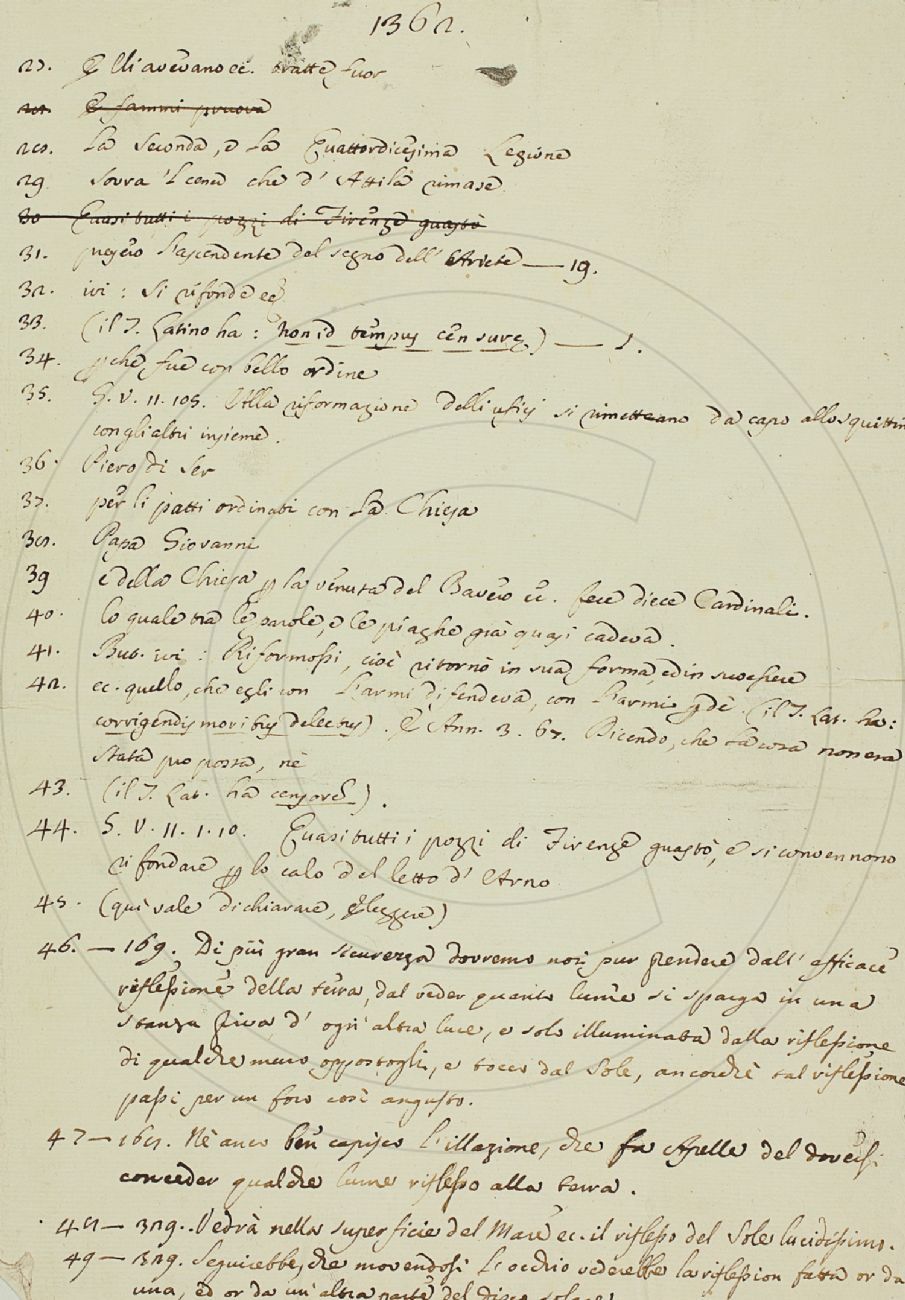 1362.
27. E lli avevano ec. tratte fuor
28. E fammi pruova
28. La Seconda, e la Quattordicesima Legione
29 Sovra 'l cener che d' Attila rimase
30 Quasi tutti i pozzi di Firenze guastò
31. preseio l'ascendente del segno dell' Ariete — 19.
32. ivi: Si rifonde ec
33. (il T. Latino ha: non id tempus censuræ) — 1.
34. pche fue con bello ordine
35. G. V. 11. 105. Alla riformazione delli ufici si rimetteano da capo allo squittin
con gli altri insieme.
36. Piero di Ser
37. per li patti ordinati con la Chiesa
38. Papa Giovanni
39 e della Chiesa p la venuta del Bavero ec. fece diece Cardinali.
40. lo quale tra le parole, e le piaghe già quasi cadeva.
41. But. ivi: Riformossi, cioè ritornò in sua forma, ed in suo essere
42. ec. quello, che egli con l'armi difendeva, con l'armi pdè. (il T. Lat. ha:
corrigendis moribus delectus). E Ann. 3. 67. Dicendo, che la cosa non era
stata proposta, nè
43. (il T. Lat. ha censores).
44. G. V. 11. 1. 10. Quasi tutti i pozzi di Firenze guastò, e si convennono
rifondare p lo calo del letto d' Arno
45. (quì vale dichiarare, eleggere)
46. — 169. Di più gran sicurezza dovremo noi pur prendere dall' efficace
riflessione della terra, dal veder quanto lume si sparga in una
stanza priva d' ogn' altra luce, e solo illuminata dalla riflessione
di qualche muro oppostogli, e tocco dal Sole, ancorchè tal riflessione
passi per un foro così angusto.
47 — 168. Nè anco ben capisco l'illazione, che fa Apelle del doversi
conceder qualche lume riflesso alla terra.
48 — 329. Vedrà nella superficie del Mare ec. il riflesso del Sole lucidissimo.
49 — 329. Seguirebbe, che movendosi l'occhio vederebbe la riflession fatta or da
una, ed or da un' altra parte del disco solare